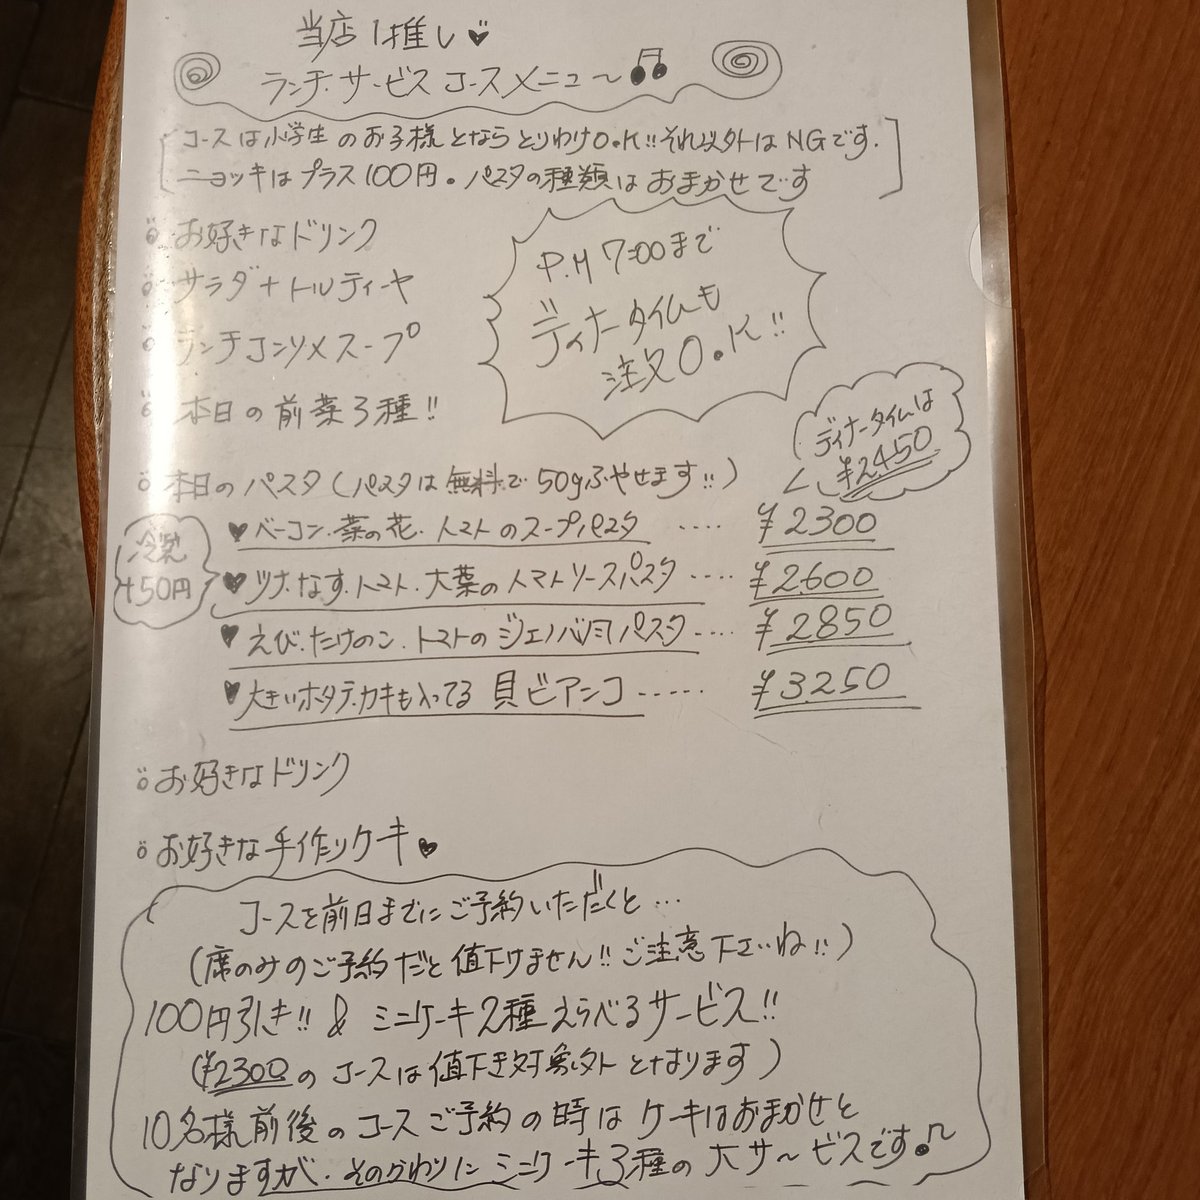 当店1推し♥
ランチサービスコースメニュ〜♫
[コースは小学生のお子様とならとりわけO.K!!それ以外はNGです.
ニョッキはプラス100円。パスタの種類はおまかせです]
お好きなドリンク
サラダ+トルティーヤ
ランチコンソメスープ
本日の前菜3種!!
P.M 7:00まで
ディナータイムも
注文O.K!!
本日のパスタ(パスタは無料で50gふやせます!!)
ディナータイムは
¥2450
♥ベーコン.菜の花.トマトのスープパスタ ‥‥ ¥2300
冷製
+50円
♥ツナ.なす.トマト.大葉のトマトソースパスタ ‥‥ ¥2600
♥えび.たけのこ.トマトのジェノバ風パスタ ‥‥ ¥2850
♥大きいホタテ.カキも入ってる 貝ビアンコ ‥‥‥ ¥3250
お好きなドリンク
お好きな手作りケーキ♥
コースを前日までにご予約いただくと…
(席のみのご予約だと値下げません!!ご注意下さいね!!)
100円引き!! & ミニケーキ2種えらべるサービス!!
(¥2300のコースは値下き対象外となります)
10名様前後のコースご予約の時はケーキはおまかせと
なりますが.そのかわりにミニケーキ3種の大サ〜ビスです♪